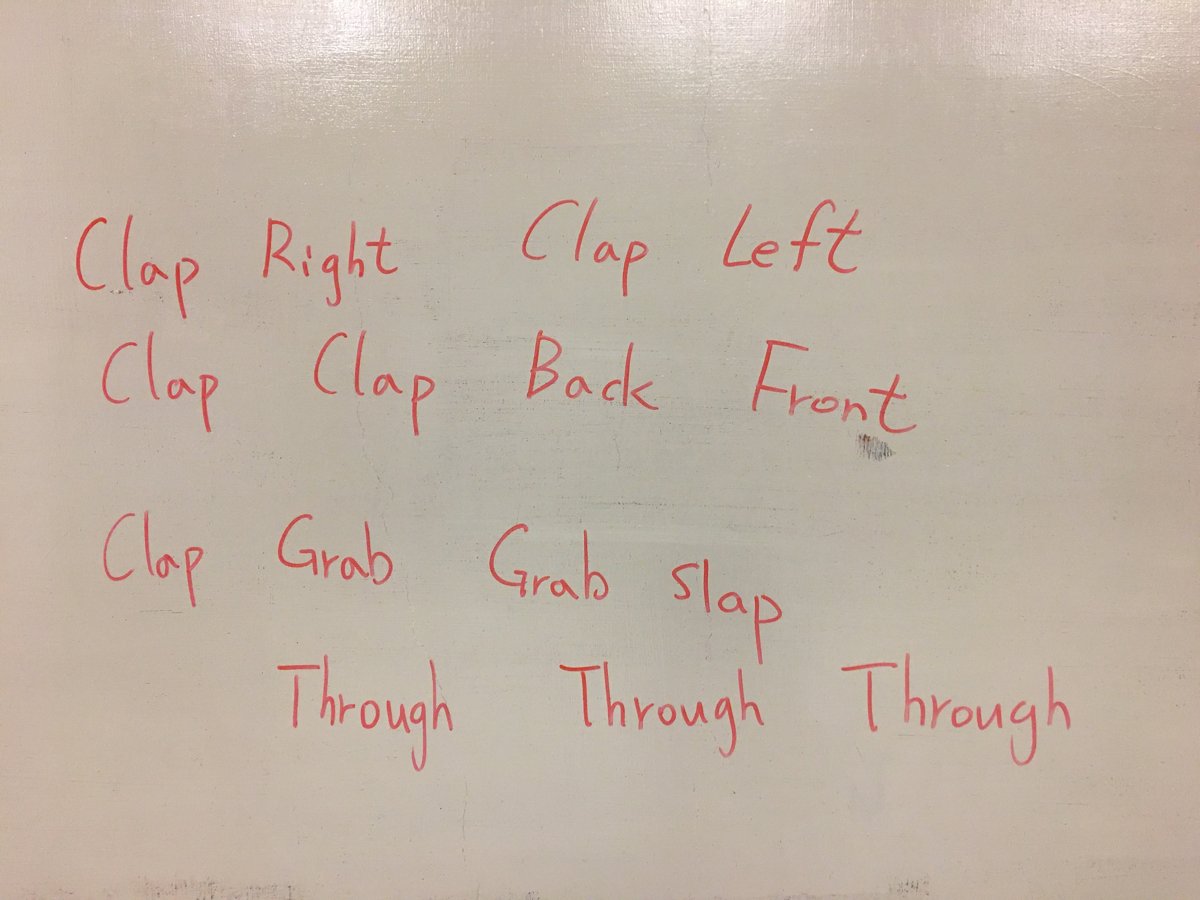 Clap Right Clap Left
Clap Clap Back Front
Clap Grab Grab slap
Through Through Through